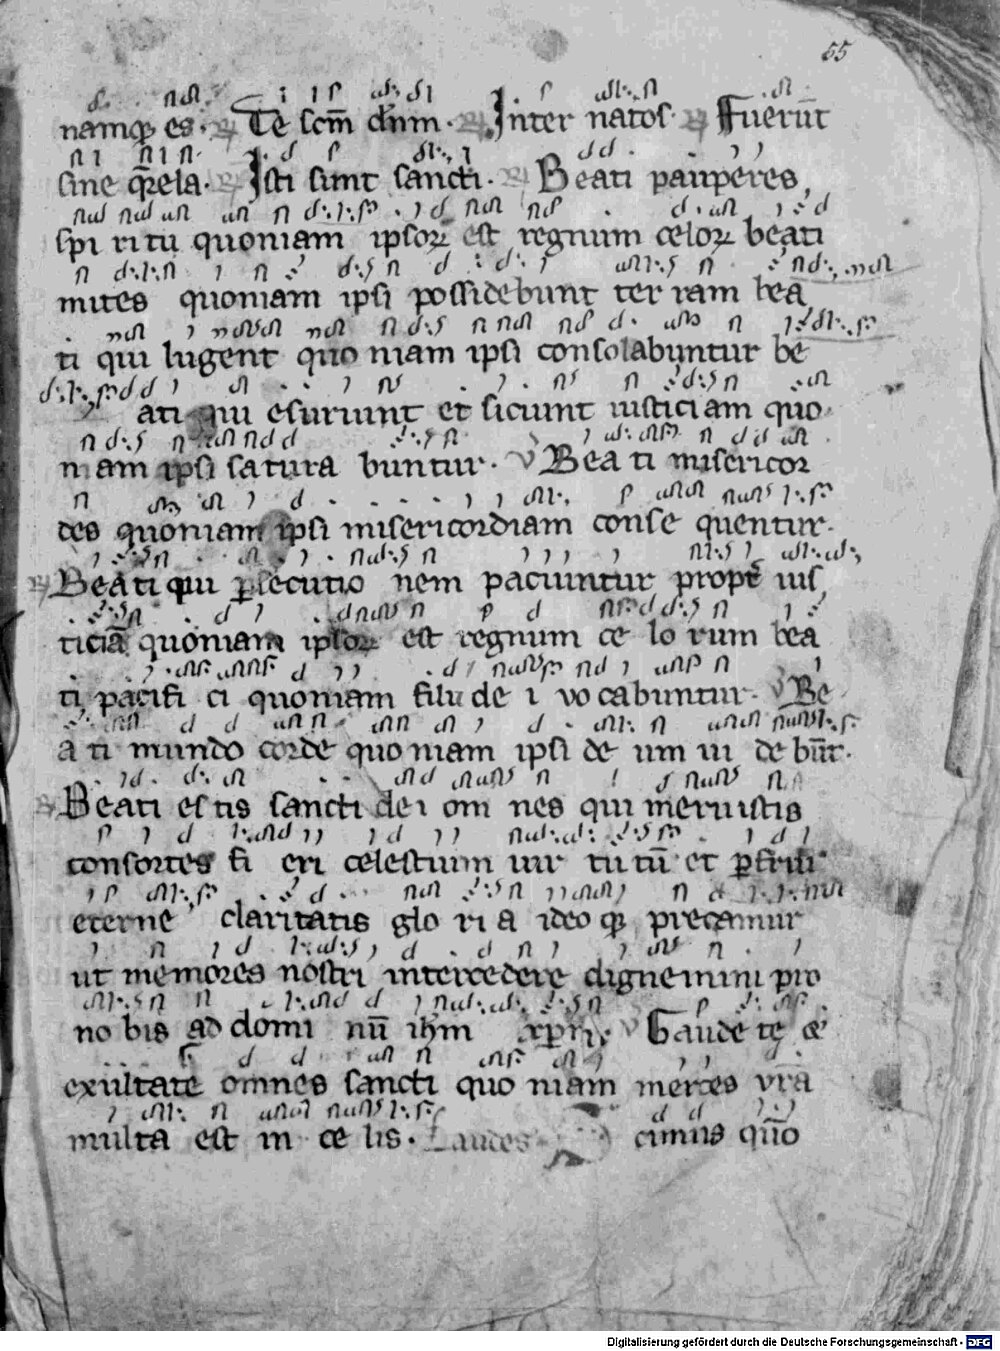 55
namqꝫ es. ℟ Te scm̄ dn̄m. ℟ Inter natos. ℟ Fuerūt
sine q̄rela. ℟ Isti sunt sancti. ℟ Beati pauperes
spi ritu quoniam ipsoꝝ est regnum celoꝝ beati
mites quoniam ipsi possidebunt ter ram bea
ti qui lugent quo niam ipsi consolabuntur be
ati qui esuriunt et siciunt iusticiam quo
niam ipsi satura buntur. V Bea ti misericor
des quoniam ipsi misericordiam conse quentur.
℟ Beati qui ꝑsecutio nem paciuntur propt̄ ius
ticiā quoniam ipsoꝝ est regnum ce lo rum bea
ti pacifi ci quoniam filii de i vo cabuntur. V Be
a ti mundo corde quo niam ipsi de um ui de būt.
℟ Beati es tis sancti de i om nes qui meruistis
consortes fi eri celestium uir tutū et ꝑfrui
eterne claritatis glo ri a ideo qꝫ precamur
ut memores nostri intercedere dignemini pro
no bis ad domi nū ihm xpm. V Gaude te et
exultate omnes sancti quo niam merces vr̄a
multa est in ce lis. Laudes cimus quō
Digitalisierung gefördert durch die Deutsche Forschungsgemeinschaft - DFG